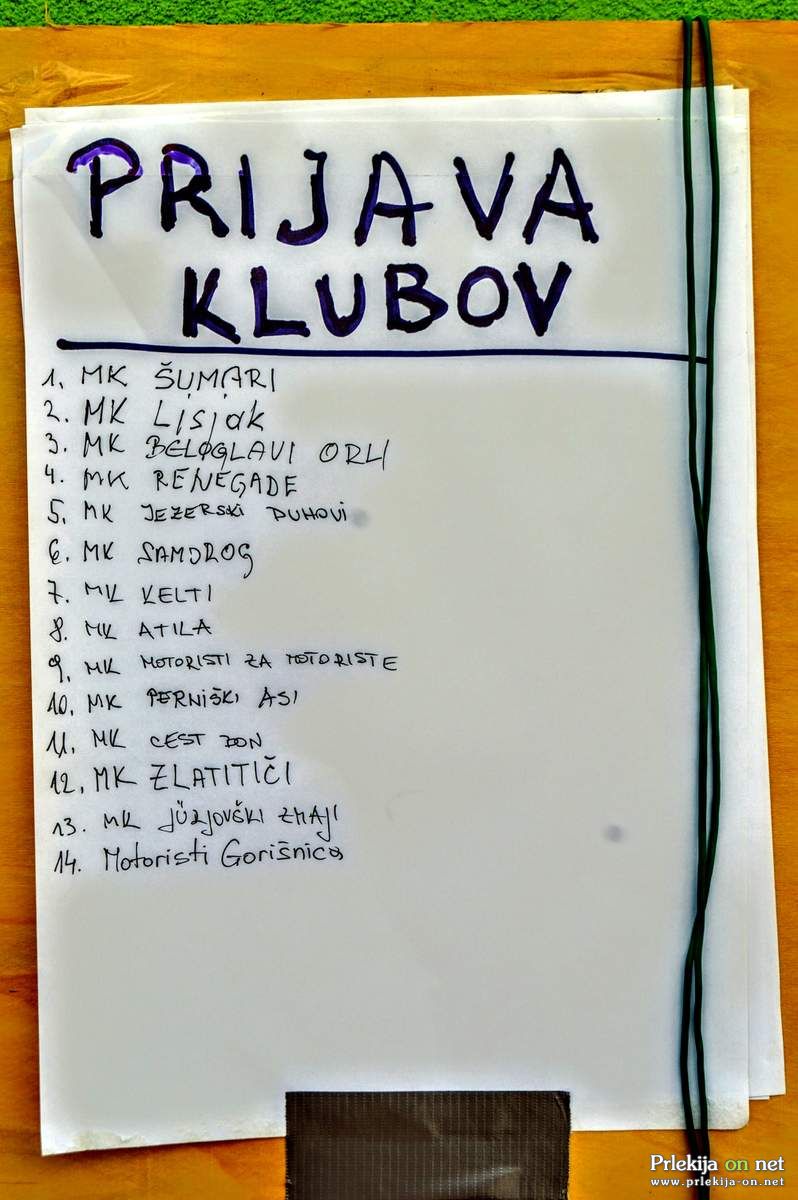 PRIJAVA
KLUBOV
1. MK ŠUMARI
2. MK Lisjak
3. MK BELOGLAVI ORLI
4. MK RENEGADE
5. MK JEZERSKI DUHOVI
6. MK SAMOROG
7. MK KELTI
8. MK ATILA
9. MK MOTORISTI ZA MOTORISTE
10. MK PERNIŠKI ASI
11. MK CEST DON
12. MK ZLATITIČI
13. MK JÜRJOVŠKI ZMAJI
14. Motoristi Gorišnica
Prlekija on net
www.prlekija-on.net